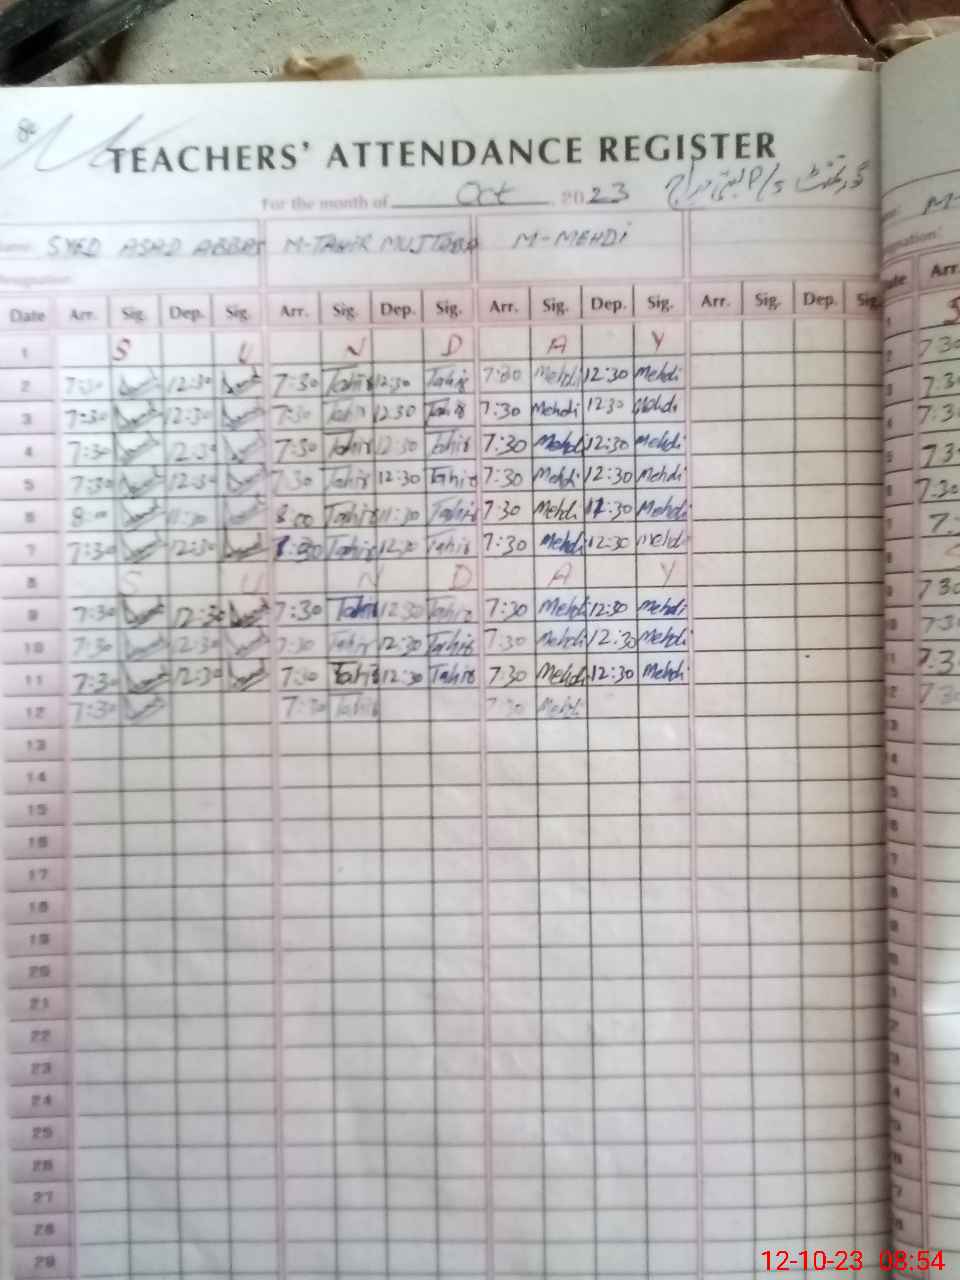 TEACHERS' ATTENDANCE REGISTER
For the month of Oct 2023 گورنمنٹ P/S بستی
Name: SYED ASAD ABBAS M-TAHIR MUJTABA M-MEHDI
Designation:
Date Arr. Sig. Dep. Sig. Arr. Sig. Dep. Sig. Arr. Sig. Dep. Sig. Arr. Sig. Dep. Sig. Arr.
1 S U N D A Y
2 7:30 12:30 7:30 Tahir 12:30 Tahir 7:30 Mehdi 12:30 Mehdi
3 7:30 12:30 7:30 Tahir 12:30 Tahir 7:30 Mehdi 12:30 Mehdi
4 7:30 12:30 7:30 Tahir 12:30 Tahir 7:30 Mehdi 12:30 Mehdi
5 7:30 12:30 7:30 Tahir 12:30 Tahir 7:30 Mehdi 12:30 Mehdi
6 8:00 11:30 8:00 Tahir 11:30 Tahir 7:30 Mehdi 12:30 Mehdi
7 7:30 12:30 7:30 Tahir 12:30 Tahir 7:30 Mehdi 12:30 Mehdi
8 S U N D A Y
9 7:30 12:30 7:30 Tahir 12:30 Tahir 7:30 Mehdi 12:30 Mehdi
10 7:30 12:30 7:30 Tahir 12:30 Tahir 7:30 Mehdi 12:30 Mehdi
11 7:30 12:30 7:30 Tahir 12:30 Tahir 7:30 Mehdi 12:30 Mehdi
12 7:30 7:30 Tahir 7:30 Mehdi
13
14
15
16
17
18
19
20
21
22
23
24
25
26
27
28
29
12-10-23 08:54